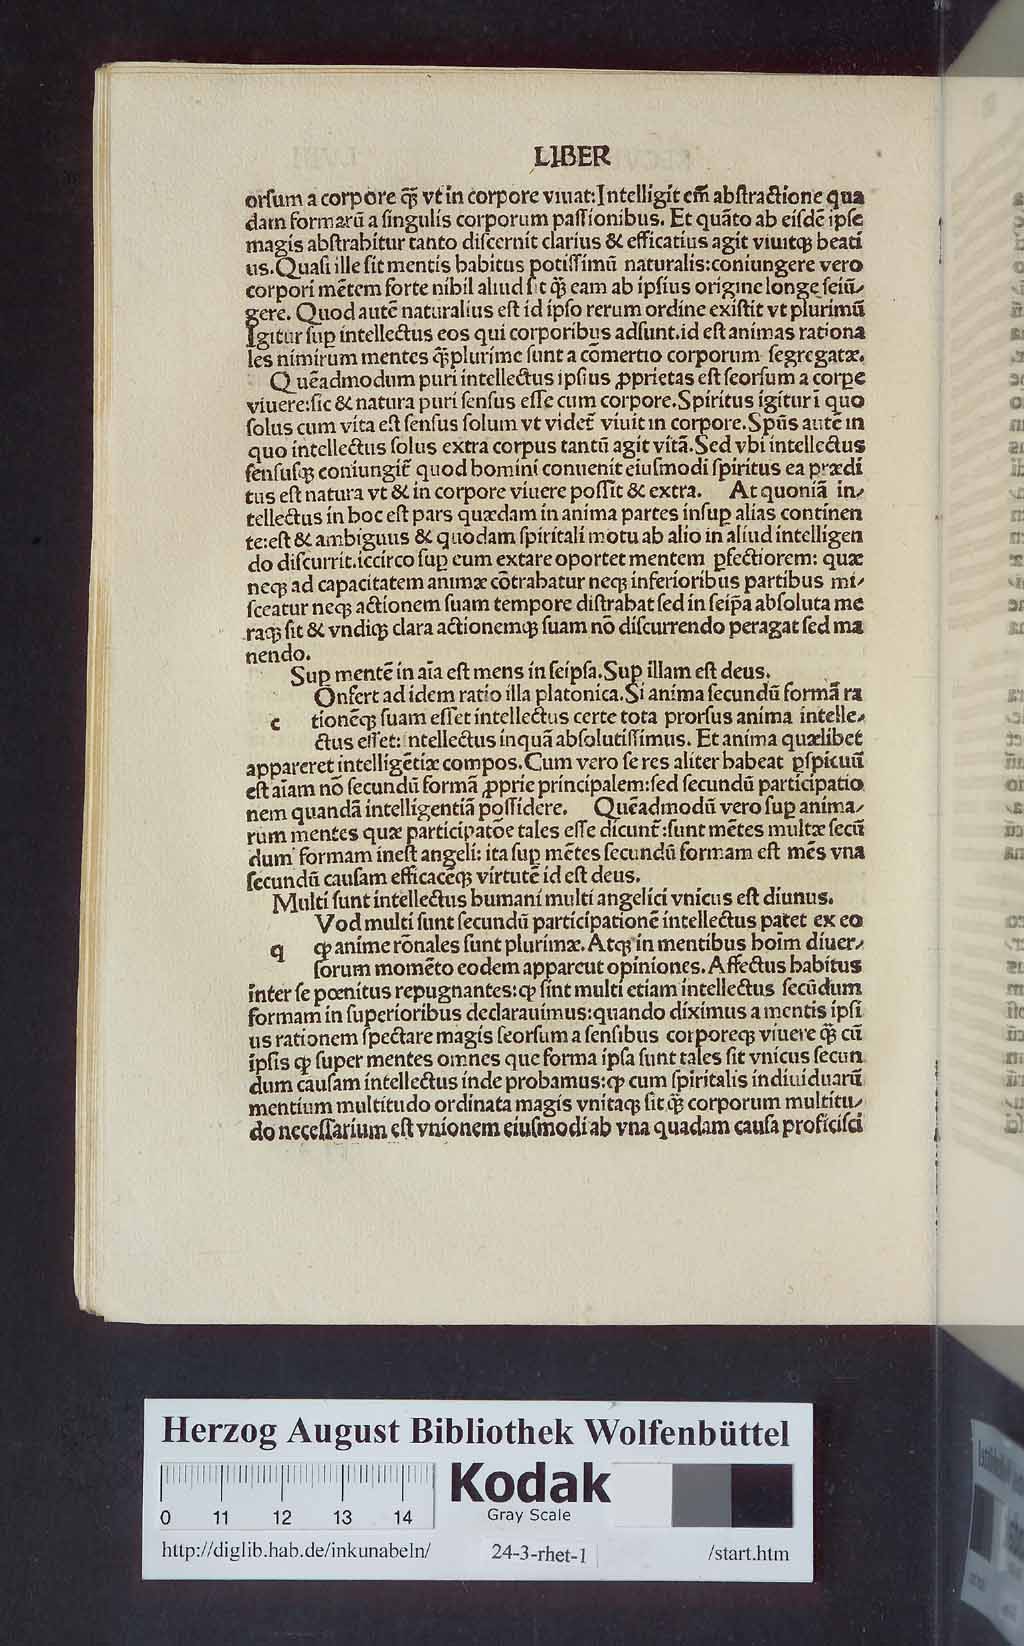 LIBER
orsum a corpore q̃ȝ vt in corpore viuat: Intelligit em̃ abstractione qua
dam formarū a singulis corporum passionibus. Et quāto ab eisdē ipse
magis abstrahitur tanto discernit clarius & efficatius agit viuitqȝ beati
us. Quasi ille sit mentis habitus potissimū naturalis: coniungere vero
corpori mētem forte nihil aliud sit q̃ȝ eam ab ipsius origine longe seiū⸗
gere. Quod autē naturalius est id ipso rerum ordine existit vt plurimū
Igitur suꝑ intellectus eos qui corporibus adsunt. id est animas rationa
les nimirum mentes q̃ȝ plurime sunt a cōmertio corporum segregatæ.
Quēadmodum puri intellectus ipsius ꝓprietas est seorsum a corꝑe
viuere: sic & natura puri sensus esse cum corpore. Spiritus igitur ī quo
solus cum vita est sensus solum vt videt̃ viuit in corpore. Spūs autē in
quo intellectus solus extra corpus tantū agit vitā. Sed vbi intellectus
sensusqȝ coniungit̃ quod homini conuenit eiusmodi spiritus ea prædi
tus est natura vt & in corpore viuere possit & extra. At quoniā in⸗
tellectus in hoc est pars quædam in anima partes insuꝑ alias continen
te: est & ambiguus & quodam spiritali motu ab alio in aliud intelligen
do discurrit. iccirco suꝑ eum extare oportet mentem ꝑfectiorem: quæ
neqȝ ad capacitatem animæ cōtrahatur neqȝ inferioribus partibus mi⸗
sceatur neqȝ actionem suam tempore distrahat sed in seip̄a absoluta me
raqȝ sit & vndiqȝ clara actionemqȝ suam nō discurrendo peragat sed ma
nendo.
Suꝑ mentē in aīa est mens in seipsa. Suꝑ illam est deus.
Onfert ad idem ratio illa platonica. Si anima secundū formā ra
c tionēqȝ suam esset intellectus certe tota prorsus anima intelle⸗
ctus esset: ntellectus inquā absolutissimus. Et anima quælibet
appareret intelligētiæ compos. Cum vero se res aliter habeat ꝑspicuū
est aīam nō secundū formā ꝓprie principalem: sed secundū participatio
nem quandā intelligentiā possidere. Quēadmodū vero suꝑ anima⸗
rum mentes quæ participatōe tales esse dicunt̃: sunt mētes multæ secū
dum formam inest angeli: ita suꝑ mētes secundū formam est mēs vna
secundū causam efficacēqȝ virtutē id est deus.
Multi sunt intellectus humani multi angelici vnicus est diuinus.
Vod multi sunt secundū participationē intellectus patet ex eo
q ꝙ anime rōnales sunt plurimæ. Atqȝ in mentibus hoīm diuer⸗
sorum momēto eodem apparent opiniones. Affectus habitus
inter se pœnitus repugnantes: ꝙ sint multi etiam intellectus secūdum
formam in superioribus declarauimus: quando diximus a mentis ipsi
us rationem spectare magis seorsum a sensibus corporeqȝ viuere q̃ȝ cū
ipsis ꝙ super mentes omnes que forma ipsa sunt tales sit vnicus secun
dum causam intellectus inde probamus: ꝙ cum spiritalis indiuiduarū
mentium multitudo ordinata magis vnitaqȝ sit q̃ȝ corporum multitu⸗
do necessarium est vnionem eiusmodi ab vna quadam causa proficisci
Herzog August Bibliothek Wolfenbüttel
Kodak
Gray Scale
0 11 12 13 14
http://diglib.hab.de/inkunabeln/ 24-3-rhet-1 /start.htm